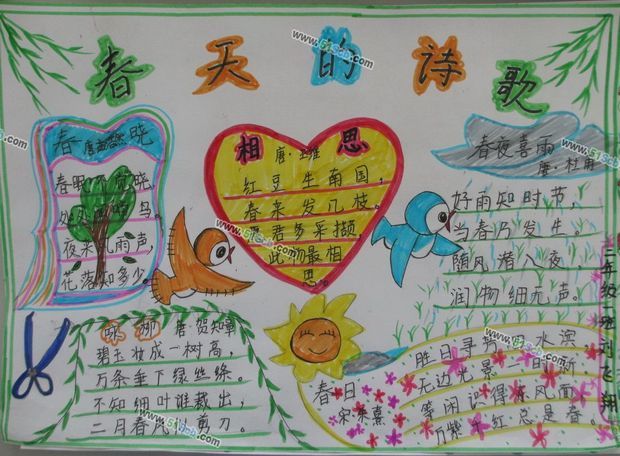 春天的诗歌
春晓
唐 孟浩然
春眠不觉晓,
处处闻啼鸟。
夜来风雨声,
花落知多少。
相思
唐·王维
红豆生南国,
春来发几枝。
愿君多采撷,
此物最相
思。
春夜喜雨
唐·杜甫
好雨知时节,
当春乃发生,
随风潜入夜,
润物细无声。
咏柳 唐 贺知章
碧玉妆成一树高,
万条垂下绿丝绦。
不知细叶谁裁出,
二月春风似剪刀。
春日
宋 朱熹
胜日寻芳泗水滨,
无边光景一时新
等闲识得东风面
万紫千红总是春。
二年级 班 刘飞翔
www.51scb.com